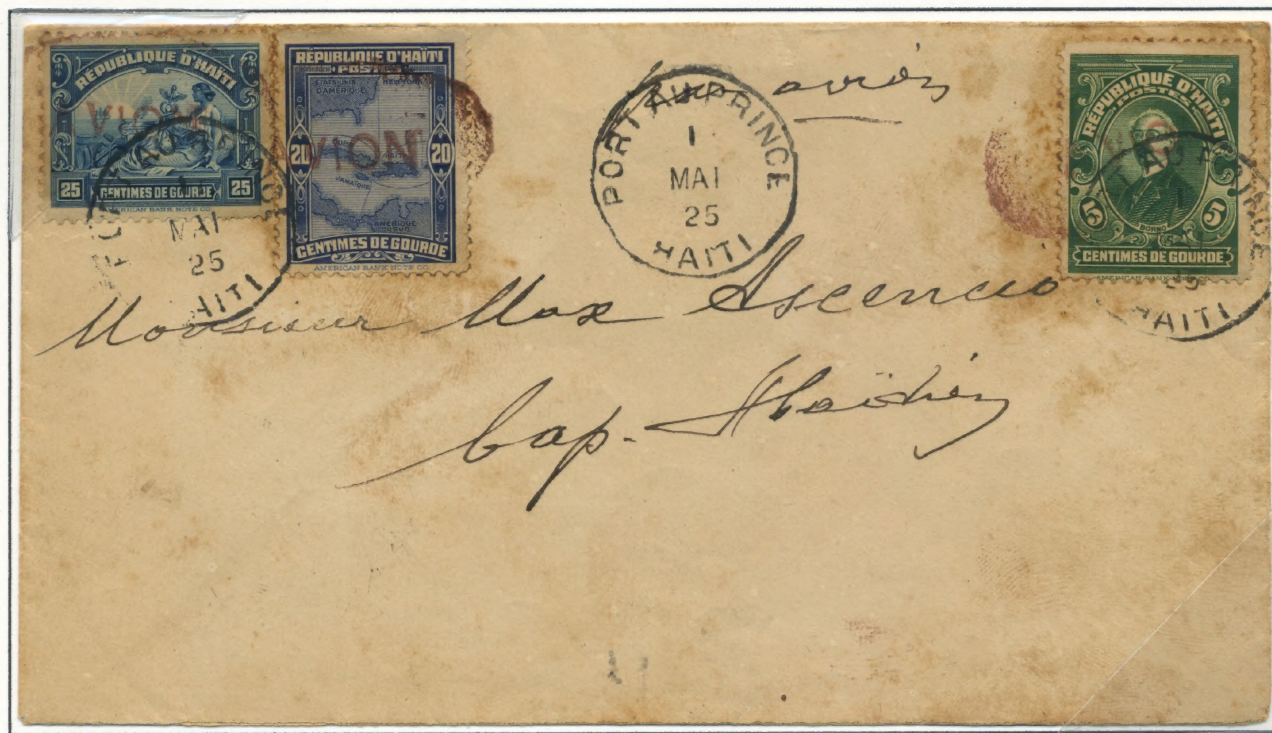 RÉPUBLIQUE D'HAÏTI
VION
25 25
CENTIMES DE GOURDE
AMERICAN BANK NOTE CO.
MAI
25
HAITI
RÉPUBLIQUE D'HAÏTI
POSTES
ÉTATS-UNIS
D'AMÉRIQUE
AVION
20 20
JAMAÏQUE
AMÉRIQUE
DU SUD
CENTIMES DE GOURDE
AMERICAN BANK NOTE CO.
Par avion
PORT AU PRINCE
1
MAI
25
HAITI
RÉPUBLIQUE D'HAÏTI
POSTES
BORNO
CENTIMES DE GOURDE
AMERICAN BANK
25
HAITI
Monsieur Max Ascencio
Cap-Haïtien